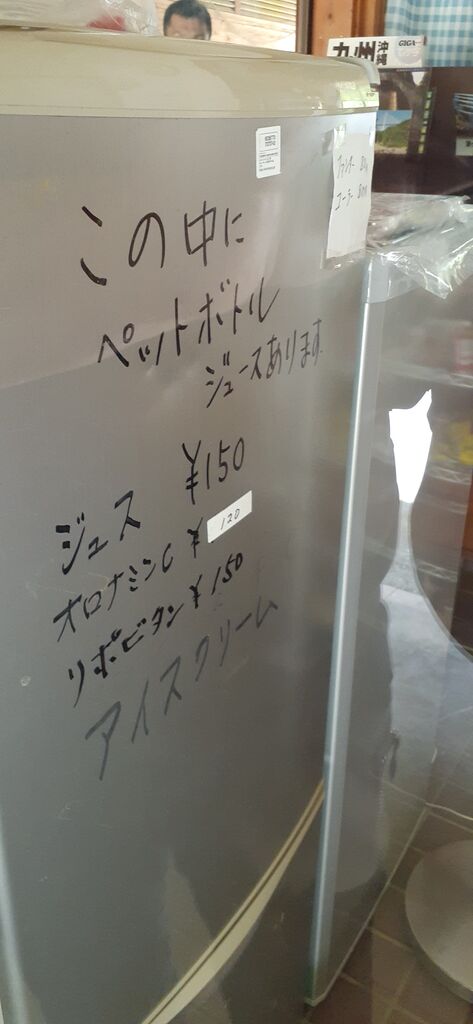 九州 沖縄 GIGA
コーラ
この中に
ペットボトル
ジュースあります
ジュス ¥150
オロナミンC ¥120
リポビタン ¥150
アイスクリーム